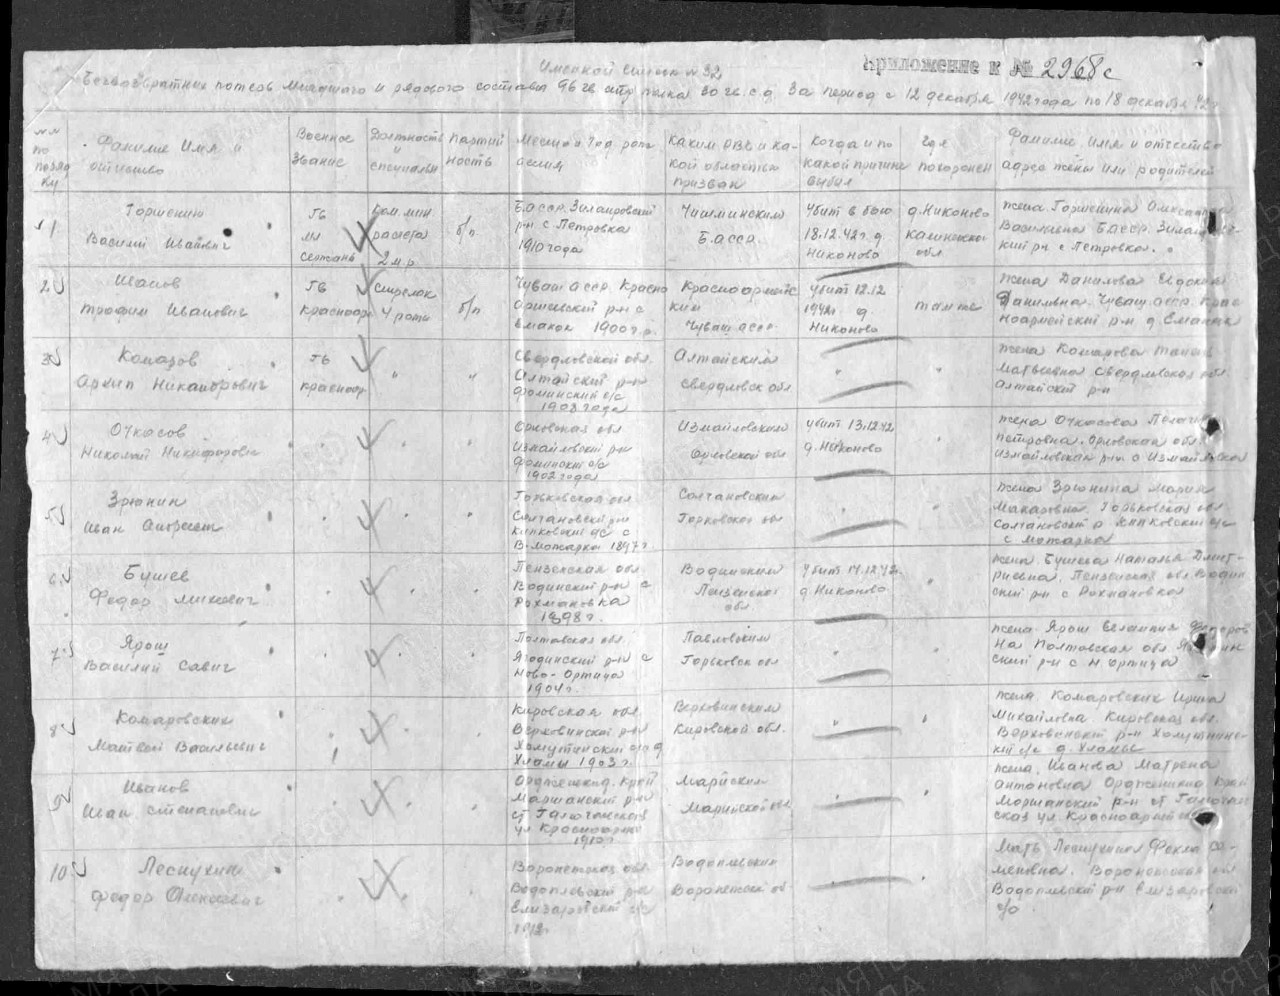 Приложение к № 2968с
Именной список № 32
Безвозвратных потерь младшего и рядового состава 96 гв. стр. полка 30 гв. с.д. за период с 12 декабря 1942 года по 18 декабря 42 г.
№ № по порядку
Фамилие Имя и отчество
Военное звание
Должность и специальн
Партийность
Место и год рождения
Каким РВК и какой областью призван
Когда и по какой причине выбыл
Где похоронен
Фамилие Имя и отчество адрес жены или родителей
1
Горшенин
Василий Иванович
Гв
мл
сержант
Ком. мин
расчета
2 м.р
б/п
БАССР. Зилаировский
р-н с Петровка
1910 года
Чишминским
БАССР
Убит в бою
18.12.42 г. д
Никоново
д. Никоново
Калининской
обл
жена Горшенина Александра
Васильевна БАССР. Зилаировс-
кий р-н с Петровка.
2
Иванов
Трофим Иванович
Гв
красноар
Стрелок
4 рота
б/п
Чуваш АССР. Красно
Армейский р-н с
1900 г.р.
Красноармейс
ким
Чуваш АССР
Убит 12.12
1942 г д
Никоново
там же
жена Данилова Евдокия
Даниловна. Чуваш АССР. Крас
ноармейский р-н д.
3
Комаров
Архип Никанорович
Гв
красноар
"
"
Свердловской обл.
Алтайский р-н
Фоминский с/с
1903 года
Алтайским
Свердловск обл
"
"
жена Комарова
Матвеевна Свердловская обл.
Алтайский р-н
4
Очкасов
Николай Никифорович
Орловская обл
Измайловский р-н
Фоминский с/с
1902 года
Измайловским
Орловской обл
Убит 13.12.42
д. Никоново
"
жена Очкасова Пелагея
Петровна. Орловская обл.
Измайловский р-н с Измайловка
5
Зрюнин
Иван
Горьковская обл
Салтановский р-н
с/с с
В-Можарки 1897 г.
Салтановским
Горковской обл
"
"
жена Зрюнина Мария
Макаровна. Горьковская обл
с Можарки
6
Бушев
Федор
Пензенская обл.
Водинский р-н с
Рахмановка
1898 г.
Водинским
Пензенской
обл.
Убит 14.12.42.
д. Никоново
"
жена Бушева Наталья Дмит-
риевна. Пензенская обл Водин
ский р-н с Рахмановка
7
Ярош
Василий Савич
Полтавская обл.
Ягодинский р-н с
Ново-Оржица
1904 г.
Павловским
Горьковск обл
"
жена Ярош Федоров
на Полтавская обл.
ский р-н с Н Оржица
8
Комаровских
Матвей Васильевич
Кировская обл.
Верховинский р-н
Хомутинский с/с д
Хламы 1903 г.
Верховинским
Кировской обл.
"
жена. Комаровских Ирина
Михайловна Кировская обл.
Верховенский р-н
с/с д. Хламы
9
Иванов
Иван Степанович
Орджоникид. Край
р-н
ст Галюгаевская
ул Красноармей
Марийским
Марийской обл
"
жена. Иванова Матрена
Антоновна Орджоникид край
р-н ст Галюгаев
ская ул. Красноармейская
10
Леснухин
Федор Алексеевич
Воронежская обл.
Водопьевский р-н
Елизаровский с/с
Водопьевским
Воронежской об
"
Мать Леснухина Фекла Се-
меновна. Воронежская обл
Водопьевский р-н Елизаровский
с/о